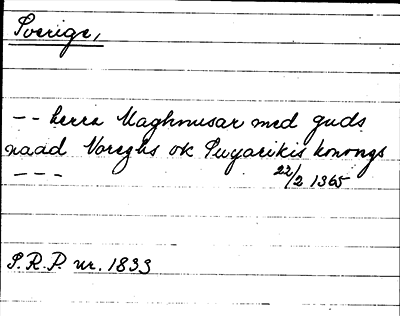 Sverige,
-- herra Maghnusar med guds
naad Noreghs ok Suyarikis konongs
--- 22/2 1365
S.R.P. nr. 1833